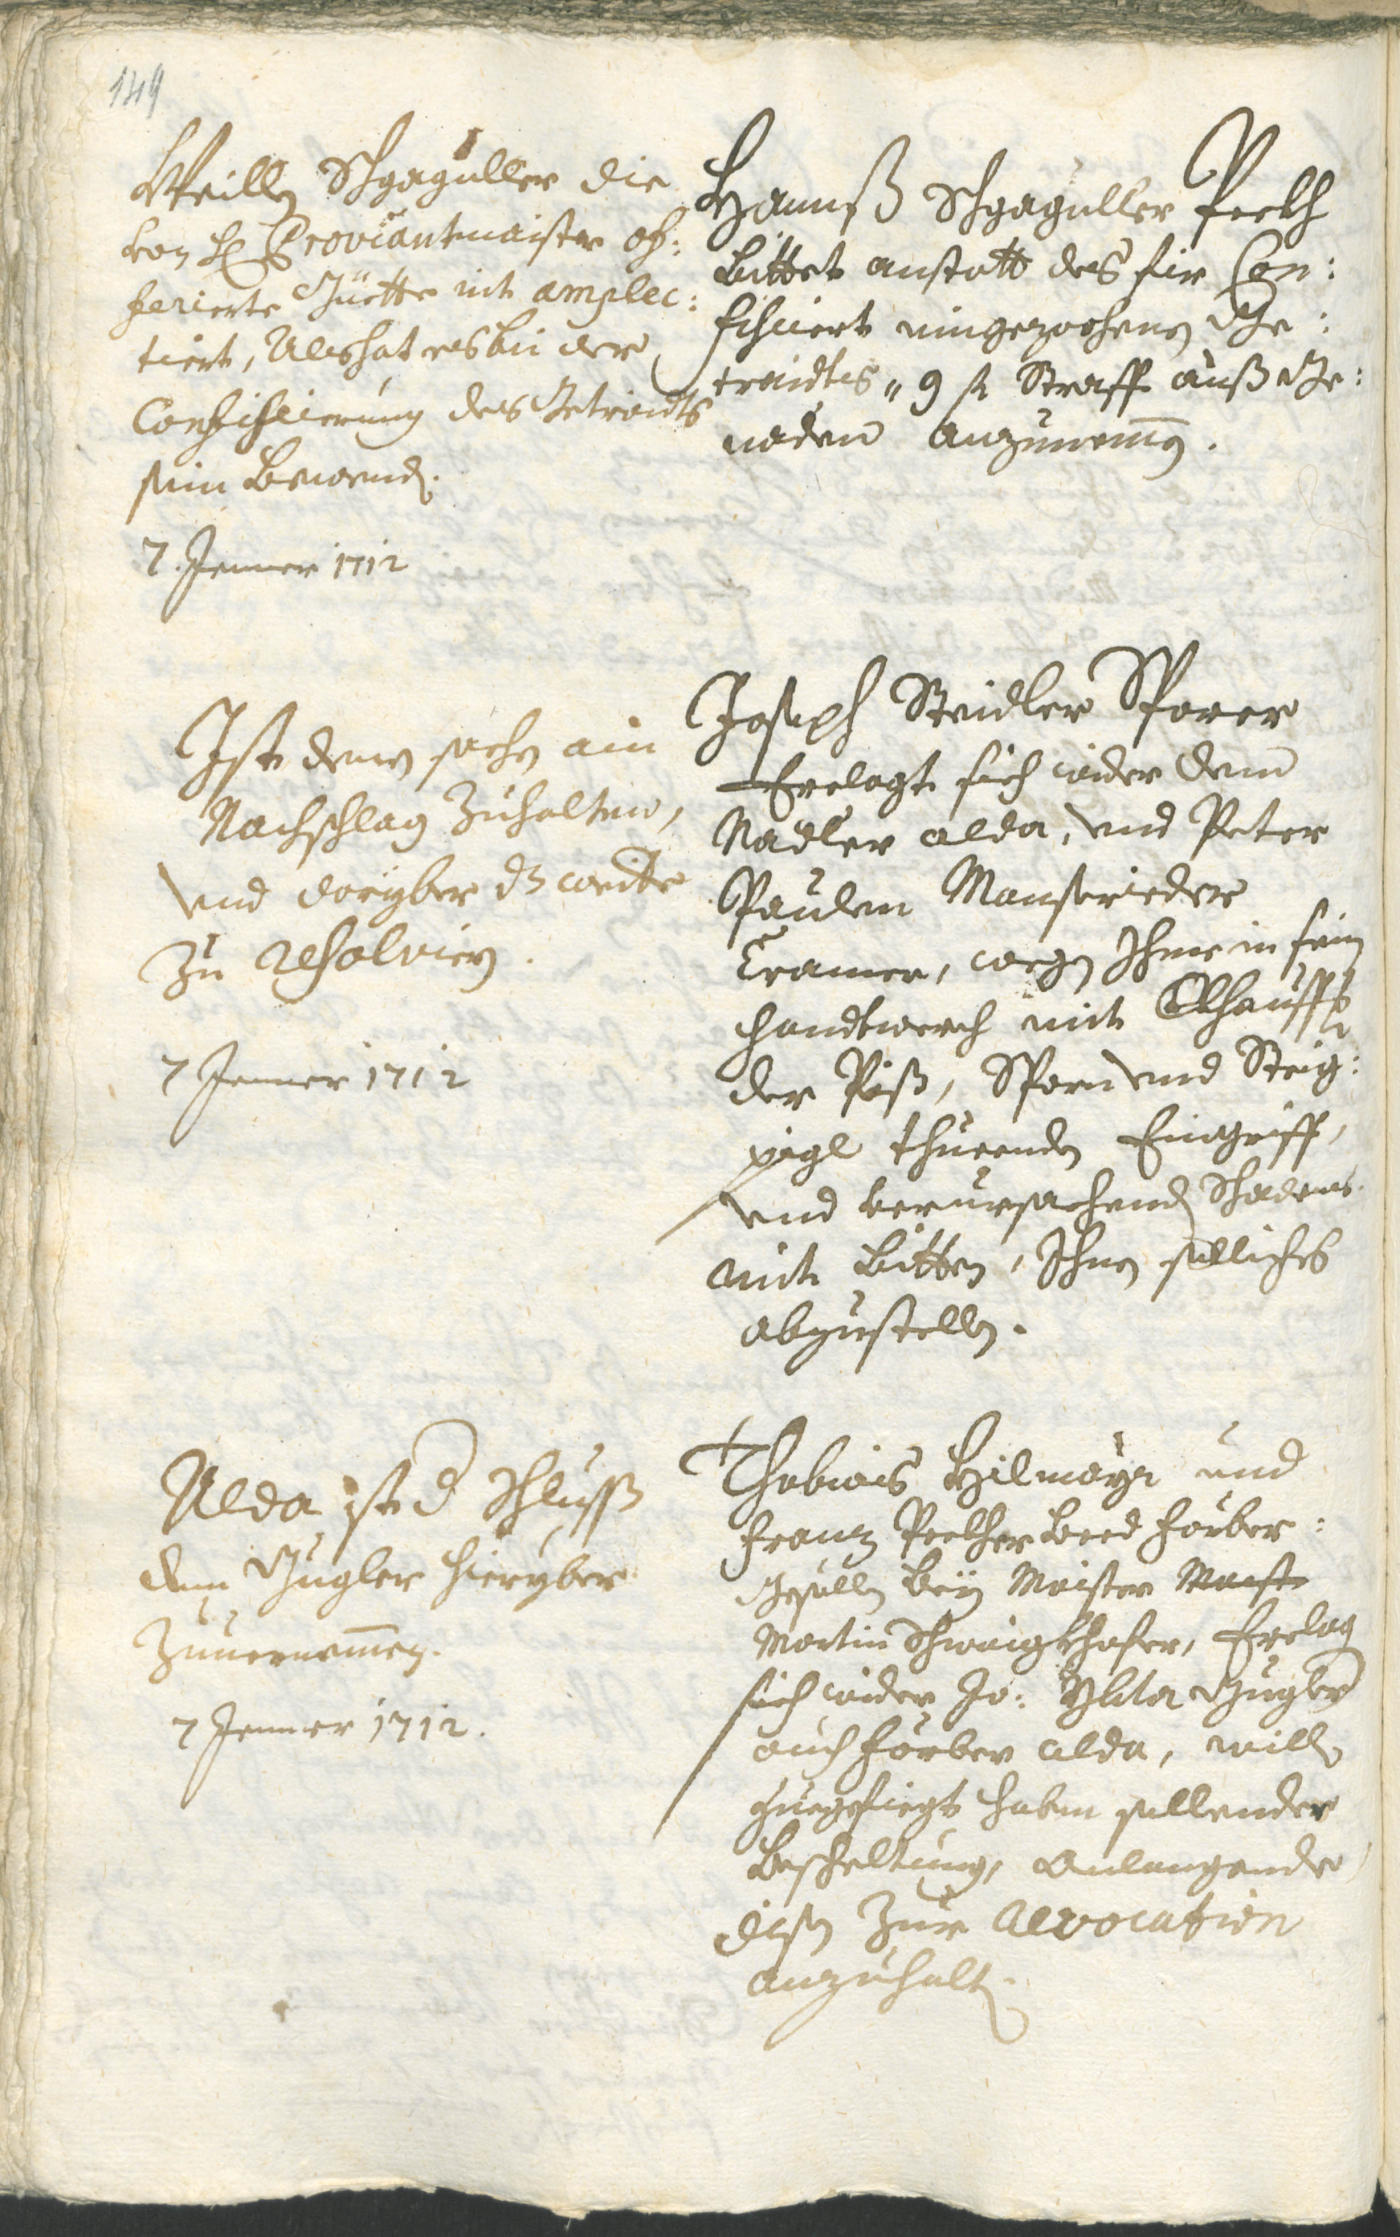 149
Weillen Schgaguller die
von H. Proviantmaister of:
ferierte Güette nit amplec:
tiert, Als hat es bei der
Confiscierung des Getraidts
sein Bewend.
7. Jenner 1712
Hannß Schgaguller Peckh
Bittet anstatt des für Con:
fisciert eingezochenen Ge:
traidtes „ 9 fl Straff auß Ge:
naden anzunemmen.
Ist denen sachen ain
Nachschlag zuhalten,
Vnd daryber dz weitere
zu resolvieren.
7 Jenner 1712
Joseph Steidler Sporer
Erclagt sich wider denn
Nadler alda, vnd Peter
Paulen Mansrieder
Cramer, wegen Ihme in sein
handtwerch mit Erkhauffung
der Piß, Sporn vnd Steig:
pigl thuenden Eingriff,
vnd verursachenden Schadens
mit Bitten, Ihnen solliches
abzustellen.
Alda ist der Schluss
den Gugler hieryber
zuuernemmen.
7 Jenner 1712.
Thobias Hilmayr und
Franz Peckher Beed Färber:
Gesellen bey Maister
Martin Schwaighofer, Erclag
sich wider Jo: Gugler
auch Färber alda, willen
zuegefiegt haben sollender
Bescheltung, Anlangende
disen zur revocation
anzuhalten.